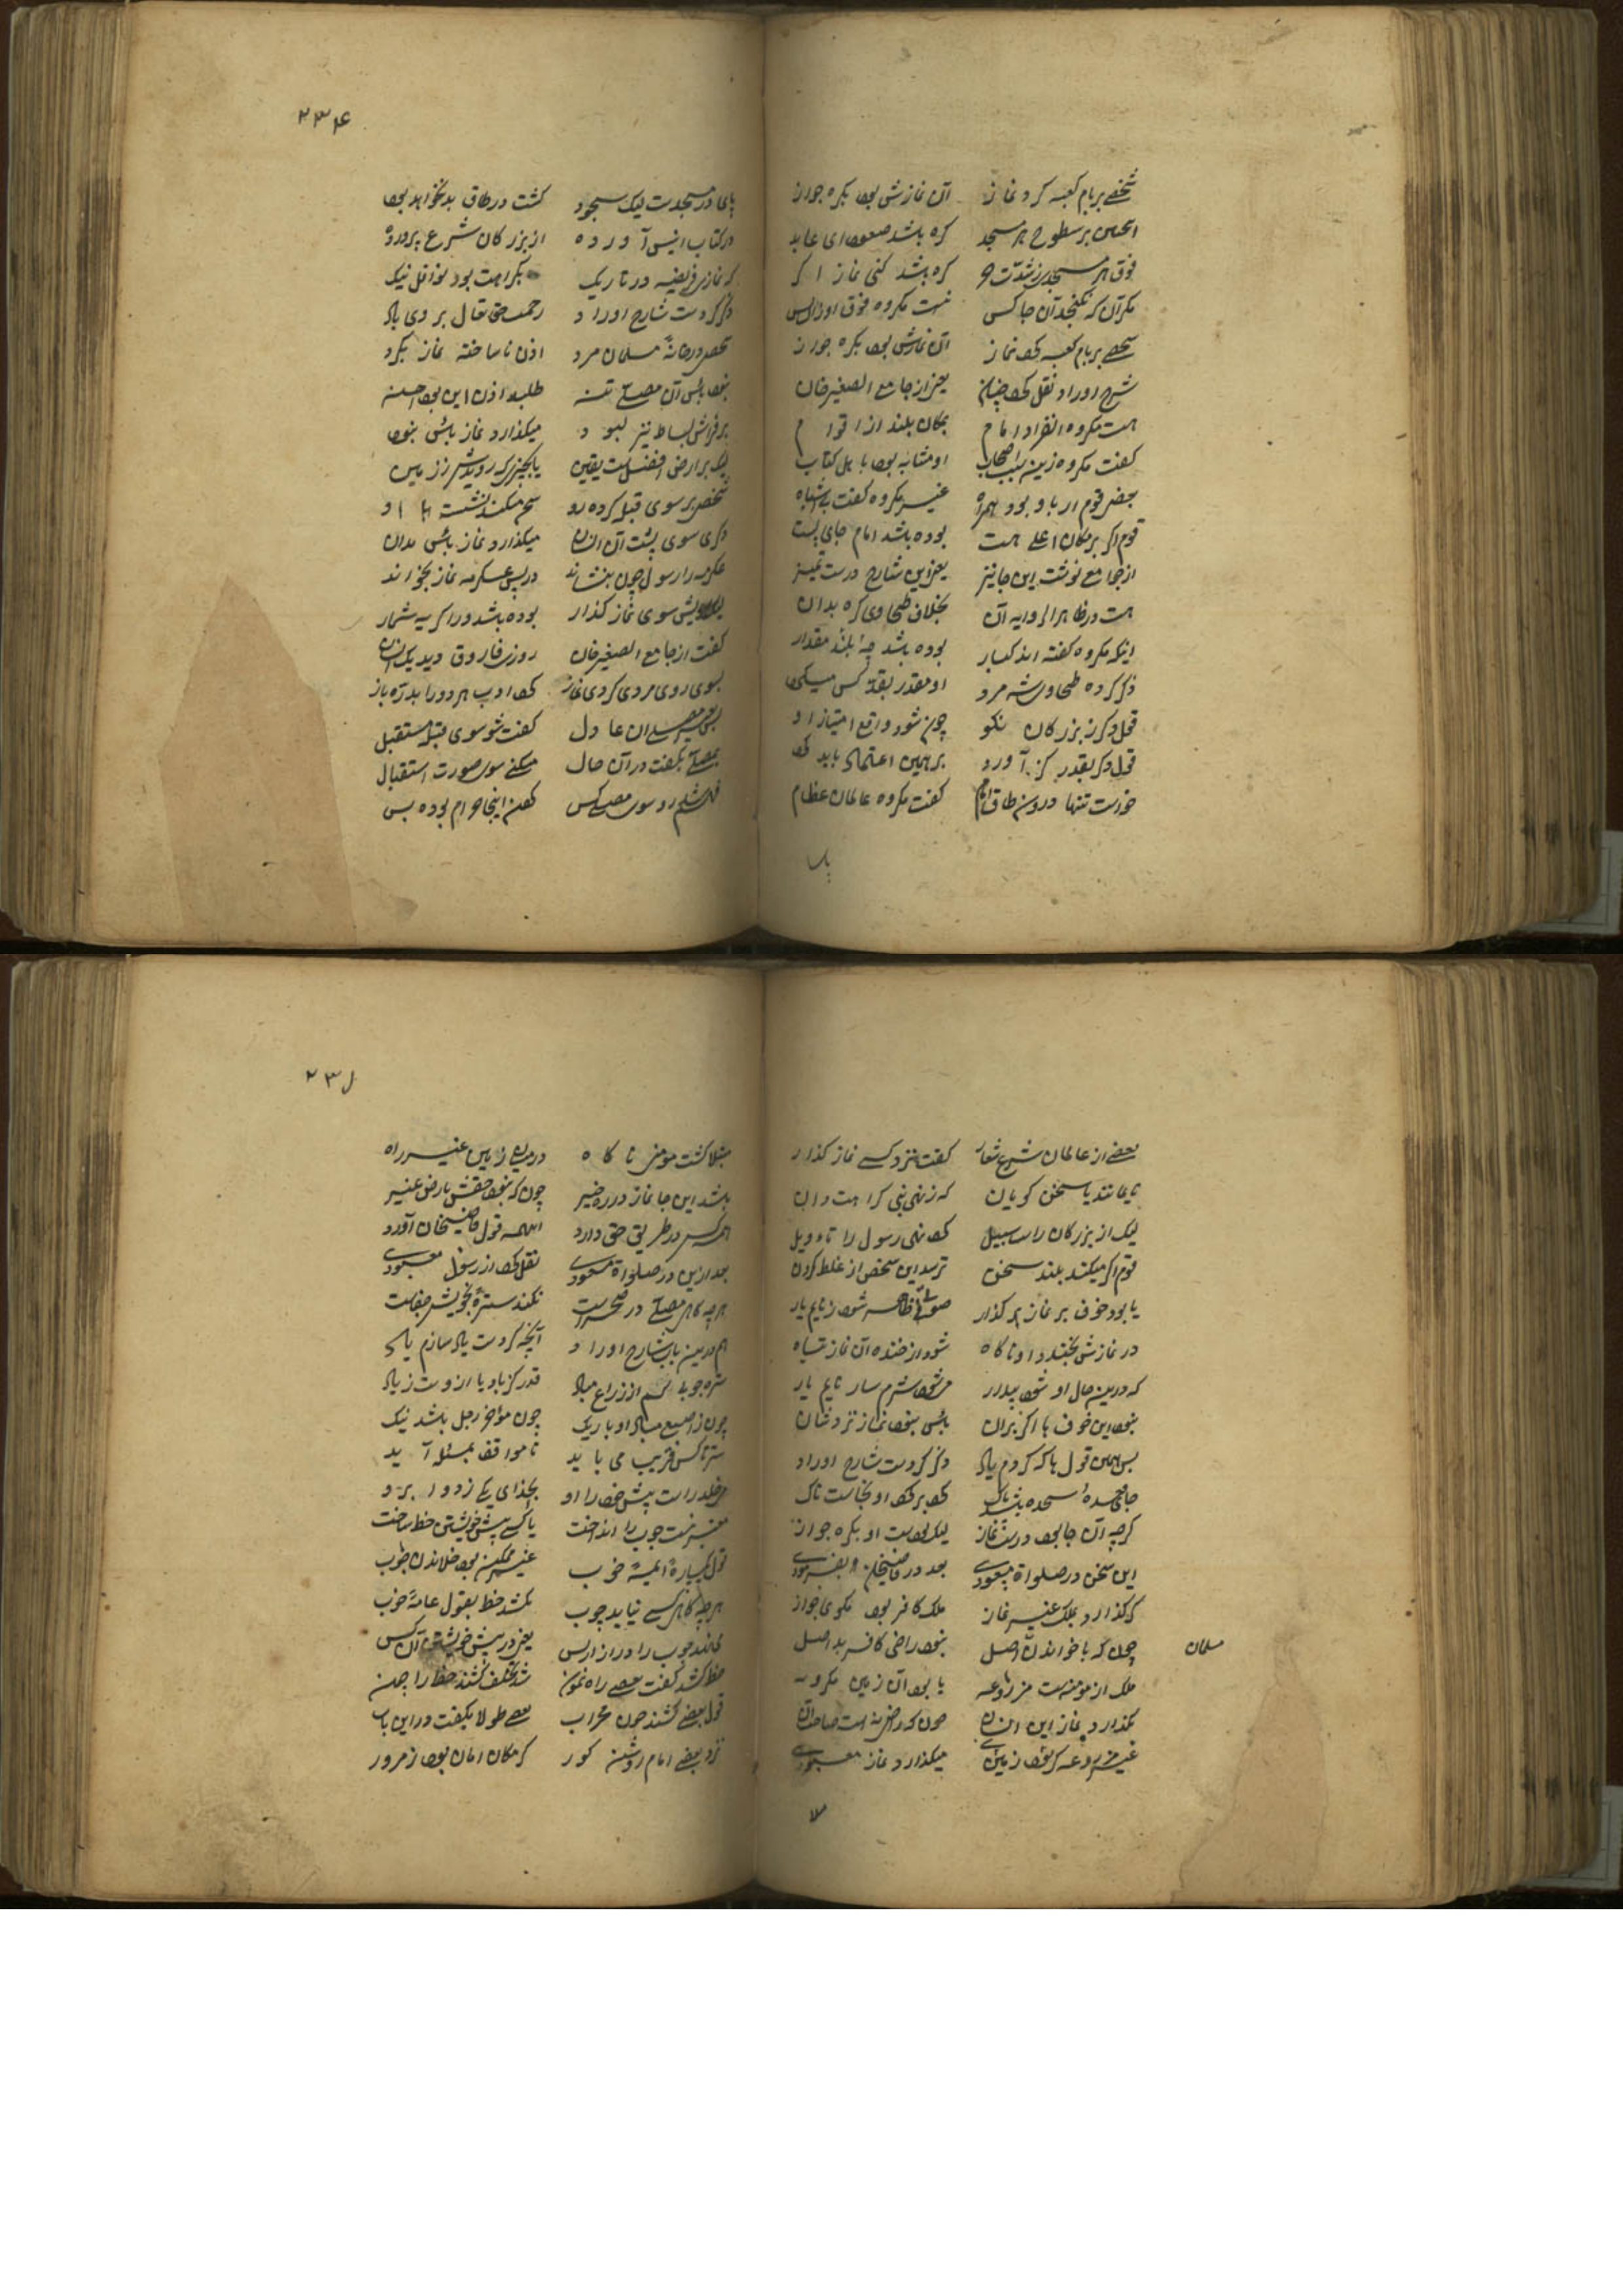 شخصے بربام کعبه کرد نماز آن نمازش بود بکره جواز
همچنین بر سطوح هر مسجد کره باشد صعود ای عابد
فوق هر مسجدی ز شدت حر کره باشد کنی نماز اگر
مگر آن که نگنجد آن جا کس نیست مکروه فوق او زان پس
شخصے بربام کعبه کرد نماز آن نمازش بود بکره جواز
شرح اوراد نقل کرد چنان یعنی از جامع الصغیر خان
هست مکروه انفراد امام بمکان بلند از اقوام
گفت مکروه زین سبب اصحاب او مشابه بود باهل کتاب
بعض قوم ار باو بود همراه غیر مکروه گفت بے اشباه
قوم اگر بر مکان اعلے هست بوده باشد امام جای پست
از جامع نوشت این جا نیز یعنی این شارح درست تمیز
هست در ظاهر الروایه آن بخلاف طحاوی کره بدان
اینکه مکروه گفته اند کبار بوده باشد چه بلند مقدار
ذکر کرده طحاوی شه مرد او مقدر بقد کس میکرد
قول دگر ز بزرگان نکو چون شود واقع امتیاز او
قول دگر بقدر گز آورد بر همین اعتماد باید کرد
خورست تنها درون طاق امام گفت مکروه عالمان عظام
پا
۲۳۴
پای در مسجدست لیک سجود گشت در طاق بد نخواهد بود
در کتاب انیس آورده از بزرگان شرع پرورده
که نماز فریضه در تاریک بکراهت بود نوافل نیک
ذکر کردست شارح اوراد رحمت حق تعالی بر وی باد
شخص در خانهٔ مسلمان مرد اذن ناساخته نماز بکرد
نبود باس آن مصلے تنه طلبد اذن این بود احسنه
بر فراش بساط نیز نبود میگذارد نماز باس نبود
لیک بر ارض افضلست یقین یا بچیزی که روید از زمین
شخص بر سوی قبله کرده رو سخن میکند نشسته او
دگری سوی پشت آن انسان میگذارد نماز باس مدان
عکرمه را رسول چون بنشاند در پس عکرمه نماز بخواند
لیک رویش سوی نماز گذار بوده باشد ورا کریه شمار
گفت از جامع الصغیر خان روزی فاروق دید یک انسان
بسوی روی مردی کردی نماز کرد ادب هر دو را بدره باز
بمصلے آن عادل گفت شو سوی قبله مستقبل
بمصلے بگفت در آن حال میکنے سوی صورت استقبال
رو سوی مصلے کس کردن اینجا حرام بوده بس
بعضے از عالمان شرع شعار گفت نزد کسے نماز گذار
نایمانند یا سخن گویان که ز نهی نبی کراهت دان
لیک از بزرگان راست سبیل کرد نهی رسول را تاویل
قوم اگر میکند بلند سخن ترسد این شخص از غلط کردن
یا بود خوف بر نماز گذار صوتے ظاهر شود ز نایم یار
در نمازش بخندد او ناگاه شود از خنده آن نماز تباه
که درین حال او شود بیدار میشود شرم سار نایم یار
نبود این خوف ها اگر بر آن باس نبود نماز نزدشان
بس همین قول ها که کردم یاد ذکر کردست شارح اوراد
جای سجده باشد پاک کرد بر کف او نجاست ناک
گرچه آن جا بود درست نماز لیک بودست او بکره جواز
این سخن در صلواة مسعودے بعد در قاضیخان بفرمودے
گر گذارد بملک غیر نماز ملک کافر بود مگوی جواز
چون که با خواندن اصل نبود راضی کافر بد اصل
مسلمان
ملک از مومنست مزروعه یا بود آن زمین مکروبه
بگذارد نماز این انسان چون که راضی نه است صاحب آن
غیر مزروعه گر بود زمینے میگذارد نماز مسعودے
۲۳۵
مبتلا گشت مومن ناگاه درمیان زمین غیر راه
باشد این جا نماز در ره خیر چون که نبود حقش بارض غیر
همه کس در طریق حق دارد اینهمه قول قاضیخان آورد
بعد ازین در صلواة مسعودے نقل کرد از رسول معبودے
هرچه گاهی مصلے در صحراست نکند سترهٔ بخویش جفاست
هم درین باب شارح اوراد آنچه کردست یاد سازم یاد
ستره چوب کم از ذراع مباد قدر گز باد یا ازوست زیاد
چون ز اصبع مباد او باریک چون موخر رحل باشد نیک
ستر تا کس قریب می باید تا موافق بمسئله آید
می خلد راست پیش خود را او بحذای یکے ز دو ابرو
معتبر نیست چوب را انداخت یا کسے پیش خویشتن خط ساخت
قول یکپارهٔ ائمهٔ خوب غیر ممکن بود خلاندن چوب
هرچه گاهی کسے نیابد چوب نکشد خط بقول عامهٔ خوب
ماند چوب را دراز ازس یعنی در پیش خویشتن آن کس
خط کشد گفت بعضے راه نمون شد مختلف کشند خط را چون
قول بعضے کشند چون محراب بعضے طولا بگفت در این باب
نزد بعضے امام روشن گور گر مکان امان بود ز مرور